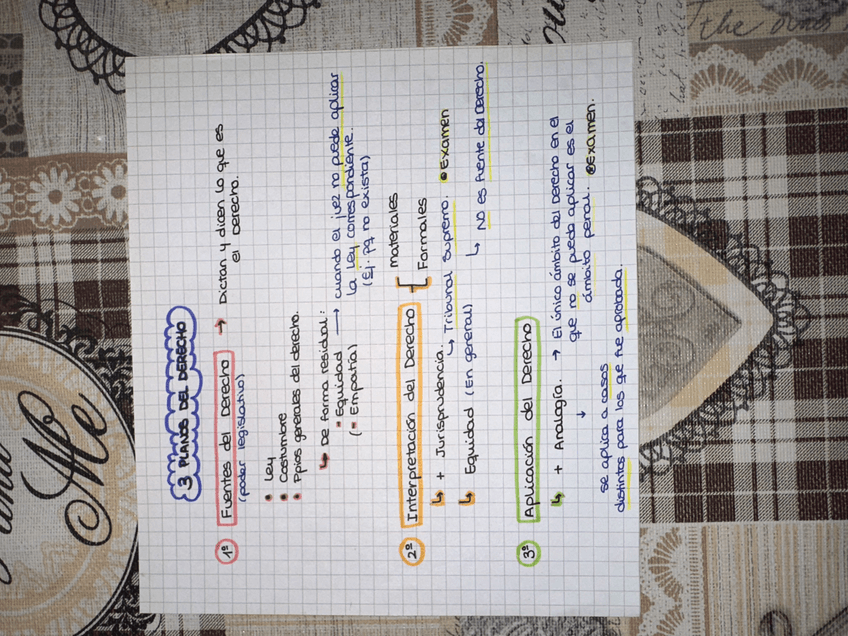 3 PLANOS DEL DERECHO
1º Fuentes del Derecho → Dictan y dicen lo que es
(poder legislativo) el Derecho.
• Ley
• Costumbre
• Ppios generales del derecho.
↳ De forma residual:
- Equidad → cuando el juez no puede aplicar
(- Empatía) la ley correspondiente.
(Ej. pq no exista)
2º Interpretación del Derecho { Materiales
Formales
↳ + Jurisprudencia.
↳ Tribunal Supremo. • Examen
↳ Equidad (En general)
↳ NO es fuente del Derecho.
3º Aplicación del Derecho
↳ + Analogía. → El único ámbito del Derecho en el
que no se puede aplicar es el
ámbito penal. • Examen.
↓
se aplica a casos
distintos para los que fue aprobada.
the
Me